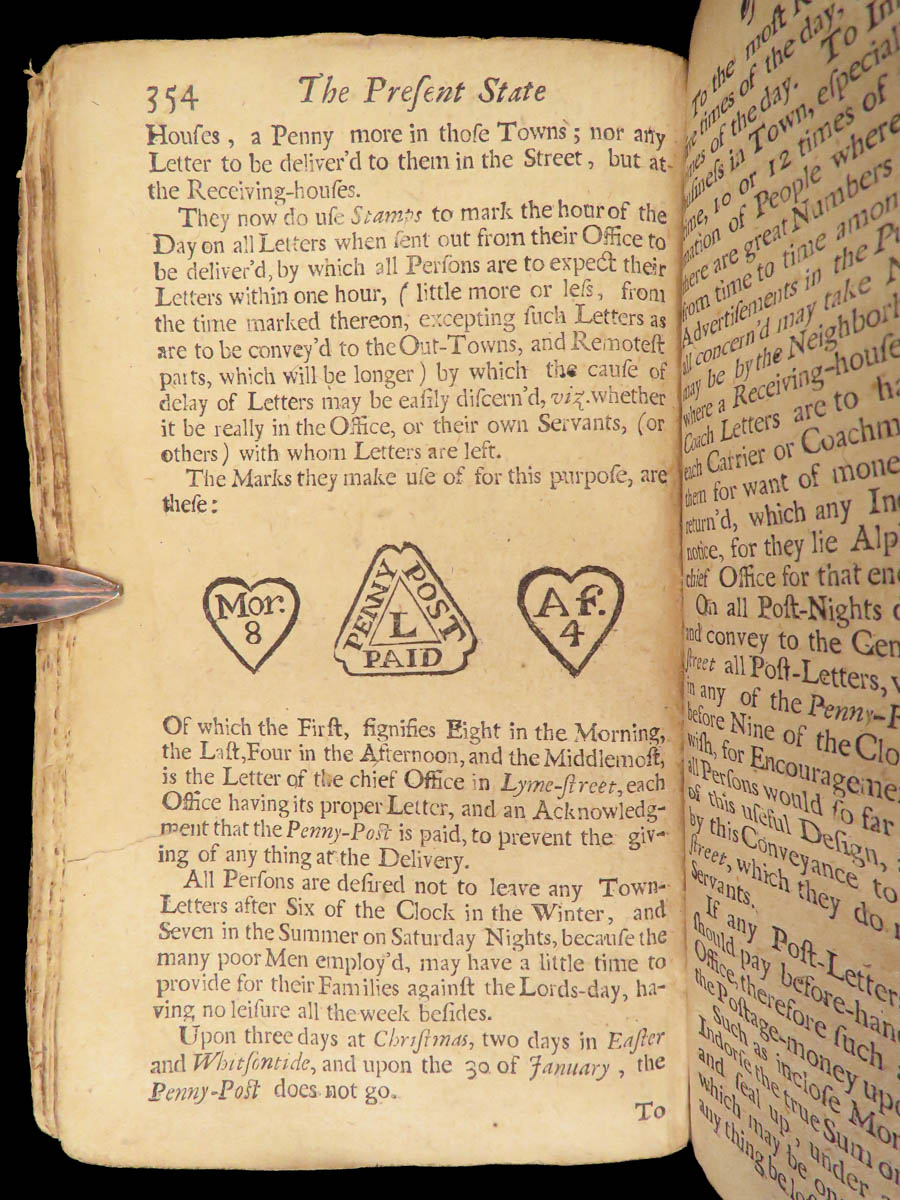 354 The Preſent State
Houſes, a Penny more in thoſe Towns; nor any
Letter to be deliver'd to them in the Street, but at
the Receiving-houſes.
They now do uſe Stamps to mark the hour of the
Day on all Letters when ſent out from their Office to
be deliver'd, by which all Perſons are to expect their
Letters within one hour, ( little more or leſs, from
the time marked thereon, excepting ſuch Letters as
are to be convey'd to the Out-Towns, and Remoteſt
parts, which will be longer ) by which the cauſe of
delay of Letters may be eaſily diſcern'd, viz. whether
it be really in the Office, or their own Servants, (or
others) with whom Letters are left.
The Marks they make uſe of for this purpoſe, are
theſe:
Mor. 8
PENNY POST PAID L
Af. 4
Of which the Firſt, ſignifies Eight in the Morning,
the Laſt, Four in the Afternoon, and the Middlemoſt,
is the Letter of the chief Office in Lyme-ſtreet, each
Office having its proper Letter, and an Acknowledg-
ment that the Penny-Poſt is paid, to prevent the giv-
ing of any thing at the Delivery.
All Perſons are deſired not to leave any Town-
Letters after Six of the Clock in the Winter, and
Seven in the Summer on Saturday Nights, becauſe the
many poor Men employ'd, may have a little time to
provide for their Families againſt the Lords-day, ha-
ving no leiſure all the week beſides.
Upon three days at Chriſtmas, two days in Eaſter
and Whitſontide, and upon the 30 of January, the
Penny-Poſt does not go.
To
To the moſt
times of the day,
of the day. To
in Town, eſpecial
10 or 12 times of
of People where
are great Numbers
from time to time among
Advertiſements in the
all concern'd may take
may be by the Neighbor
where a Receiving-houſe
Coach Letters are to
each Carrier or Coachm
them for want of mone
return'd, which any
notice, for they lie Alp
chief Office for that en
On all Poſt-Nights
and convey to the Gen
ſtreet all Poſt-Letters,
in any of the Penny-P
before Nine of the Clo
with, for Encourageme
all Perſons would ſo far
of this uſeful Deſign,
by this Conveyance to
ſtreet, which they do
Servants.
If any Poſt-Letter
ſhould pay before-han
Office, therefore ſuch
the Poſtage-money upo
Such as incloſe Mon
Indorſe the true Sum on
and ſeal up, under
which may be on
any thing be loſ